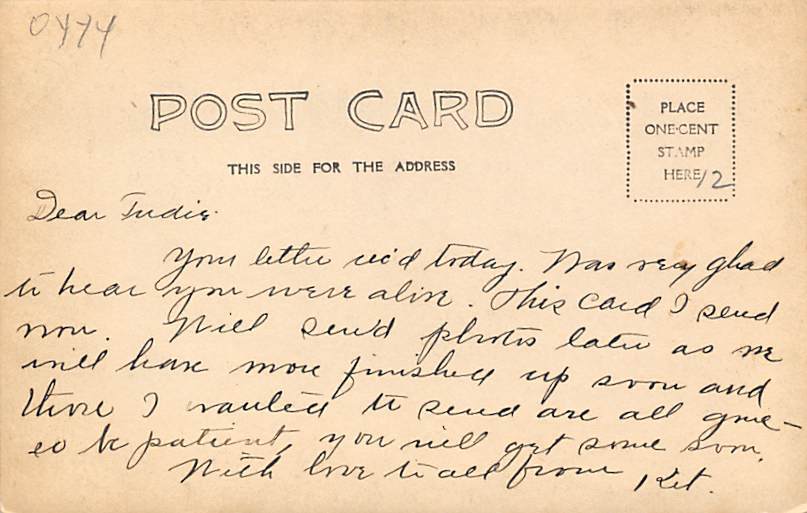 0474
POST CARD
THIS SIDE FOR THE ADDRESS
PLACE
ONE-CENT
STAMP
HERE
12
Dear
Your letter rec'd today. Was very glad
to hear you were alive. This card I send
now. Will send photos later as we
will have more finished up soon and
those I wanted to send are all gone –
so be patient, you will get some soon.
With love to all from Ket.